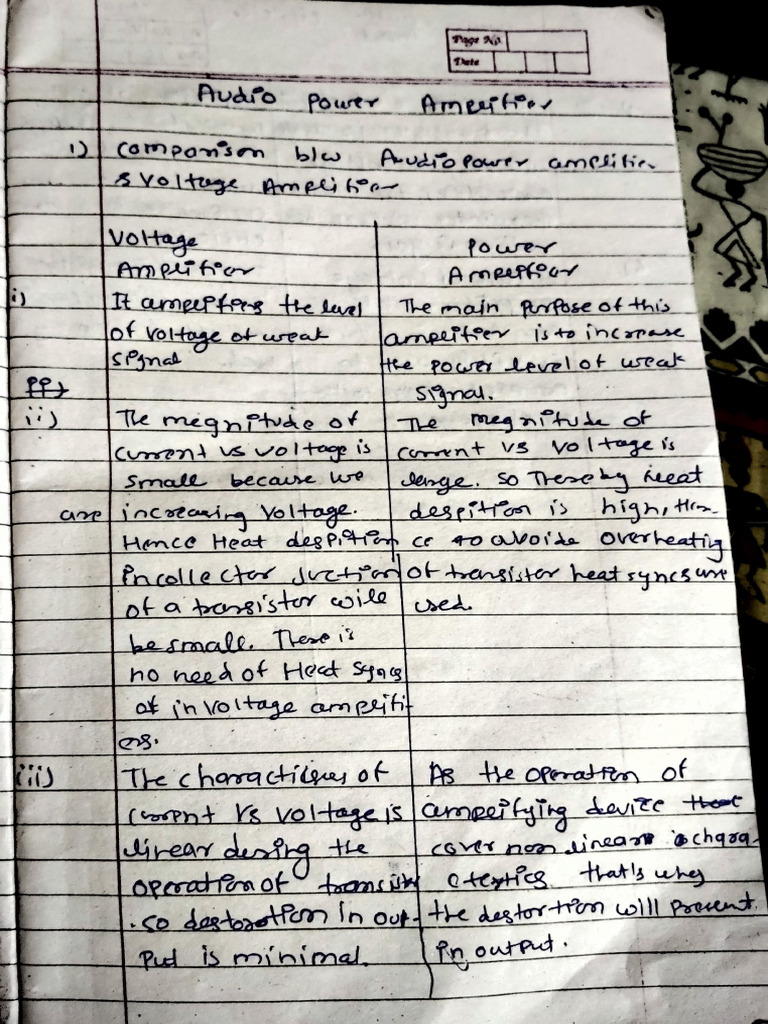 Page No.
Date
Audio Power Amplifier
1) Comparison b/w Audio power amplifier
& Voltage Amplifier
Voltage
Amplifier
i) It amplifies the level
of voltage of weak
signal
ii) The megnitude of
current vs voltage is
small because we
are increasing voltage.
Hence Heat despition
in collector Juction
of a transistor will
be small. There is
no need of Heat syncs
of in voltage amplifi-
ers.
iii) The
current vs voltage is
linear during the
operation of
. so destortion in out-
put is minimal.
Power
Amplifier
The main purpose of this
amplifier is to increase
the power level of weak
signal.
The megnitude of
current vs voltage is
large. so Thereby heat
despition is high, Hen-
ce to avoide overheating
of transistor heat syncs are
used.
As the operation of
amplifying device that
cover non linear chara-
cterstics that's why
the destortion will present
in output.